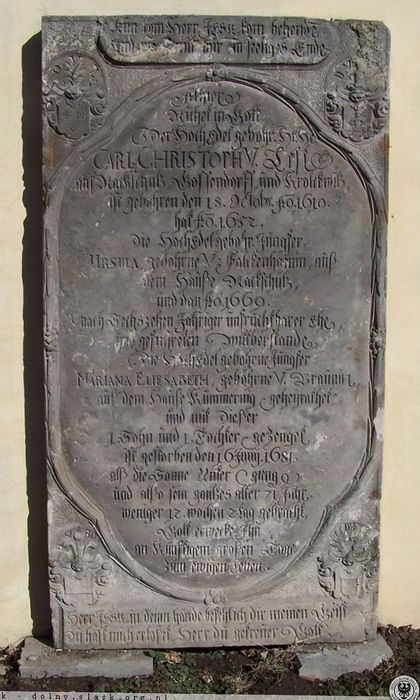 Kom Herr Jesu kom behende
Und
Alhier
Ruhet in Gott
der HochEdel gebohr. Herr
CARL CHRISTOPH V.
auß Rackschütz, Gossendorff und
ist gebohren den 18. Octobr. Ao. 1610.
hat Ao. 1652.
die HochEdel gebohr. Jungfer
URSULA gebohrne V. Falckenhainin, auß
dem Hause Rackschütz,
und dan Ao. 1660.
nach Sechszehen Jähriger unfruchtbarer Ehe
und geführeten Wittberstande
Die HochEdel gebohrne Jungfer
MARIANA ELIESABETH, gebohrne V. Braunin
auß dem Hause
und mit dieser
1. Sohn und 1. Tochter gezeuget
ist gestorben den 16 1681.
alß die Sonne Unter gieng
und also sein gantzes alter 71. Jahr,
weniger 12. wochen 2 tag gebracht
Gott erwecke Ihn
an Künftigem großen Tage
zum ewigen Leben.
Herr Jesu in deine hände befehl ich dir meinen Geist
Du hast mich erlöset Herr du getreuer Gott.
dolny.slask.org.pl